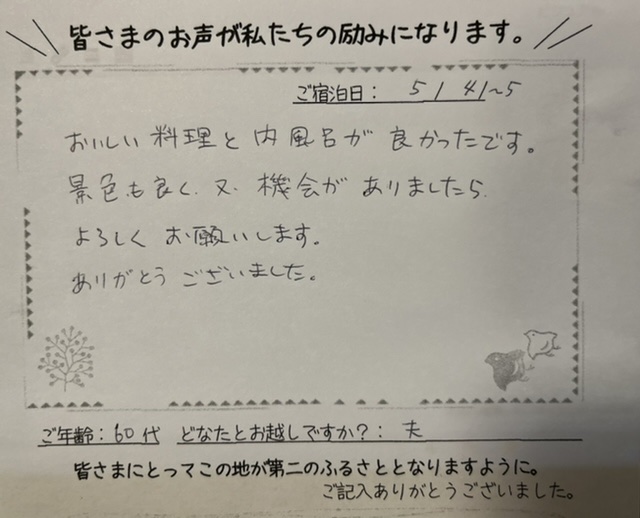 皆さまのお声が私たちの励みになります。
ご宿泊日： 5/ 4/~5
おいしい料理と内風呂が良かったです。
景色も良く、又、機会がありましたら
よろしくお願いします。
ありがとうございました。
ご年齢：60代 どなたとお越しですか？：夫
皆さまにとってこの地が第二のふるさととなりますように。
ご記入ありがとうございました。